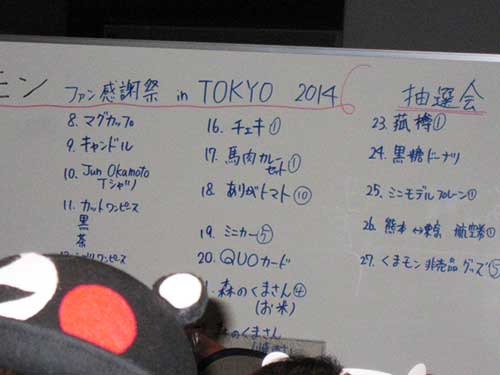 モン ファン感謝祭 in TOKYO 2014 抽選会
8. マグカップ
9. キャンドル
10. Jun Okamoto
Tシャツ
11. カットワンピース
黒
茶
ワンピース
16. チェキ①
17. 馬肉カレー
セット①
18. ありがトマト⑩
19. ミニカー⑦
20. QUOカード
森のくまさん④
(お米)
森のくまさん
23. 菰樽①
24. 黒糖ドーナツ
25. ミニモデルプレーン①
26. 熊本↔東京 航空券①
27. くまモン非売品グッズ⑤